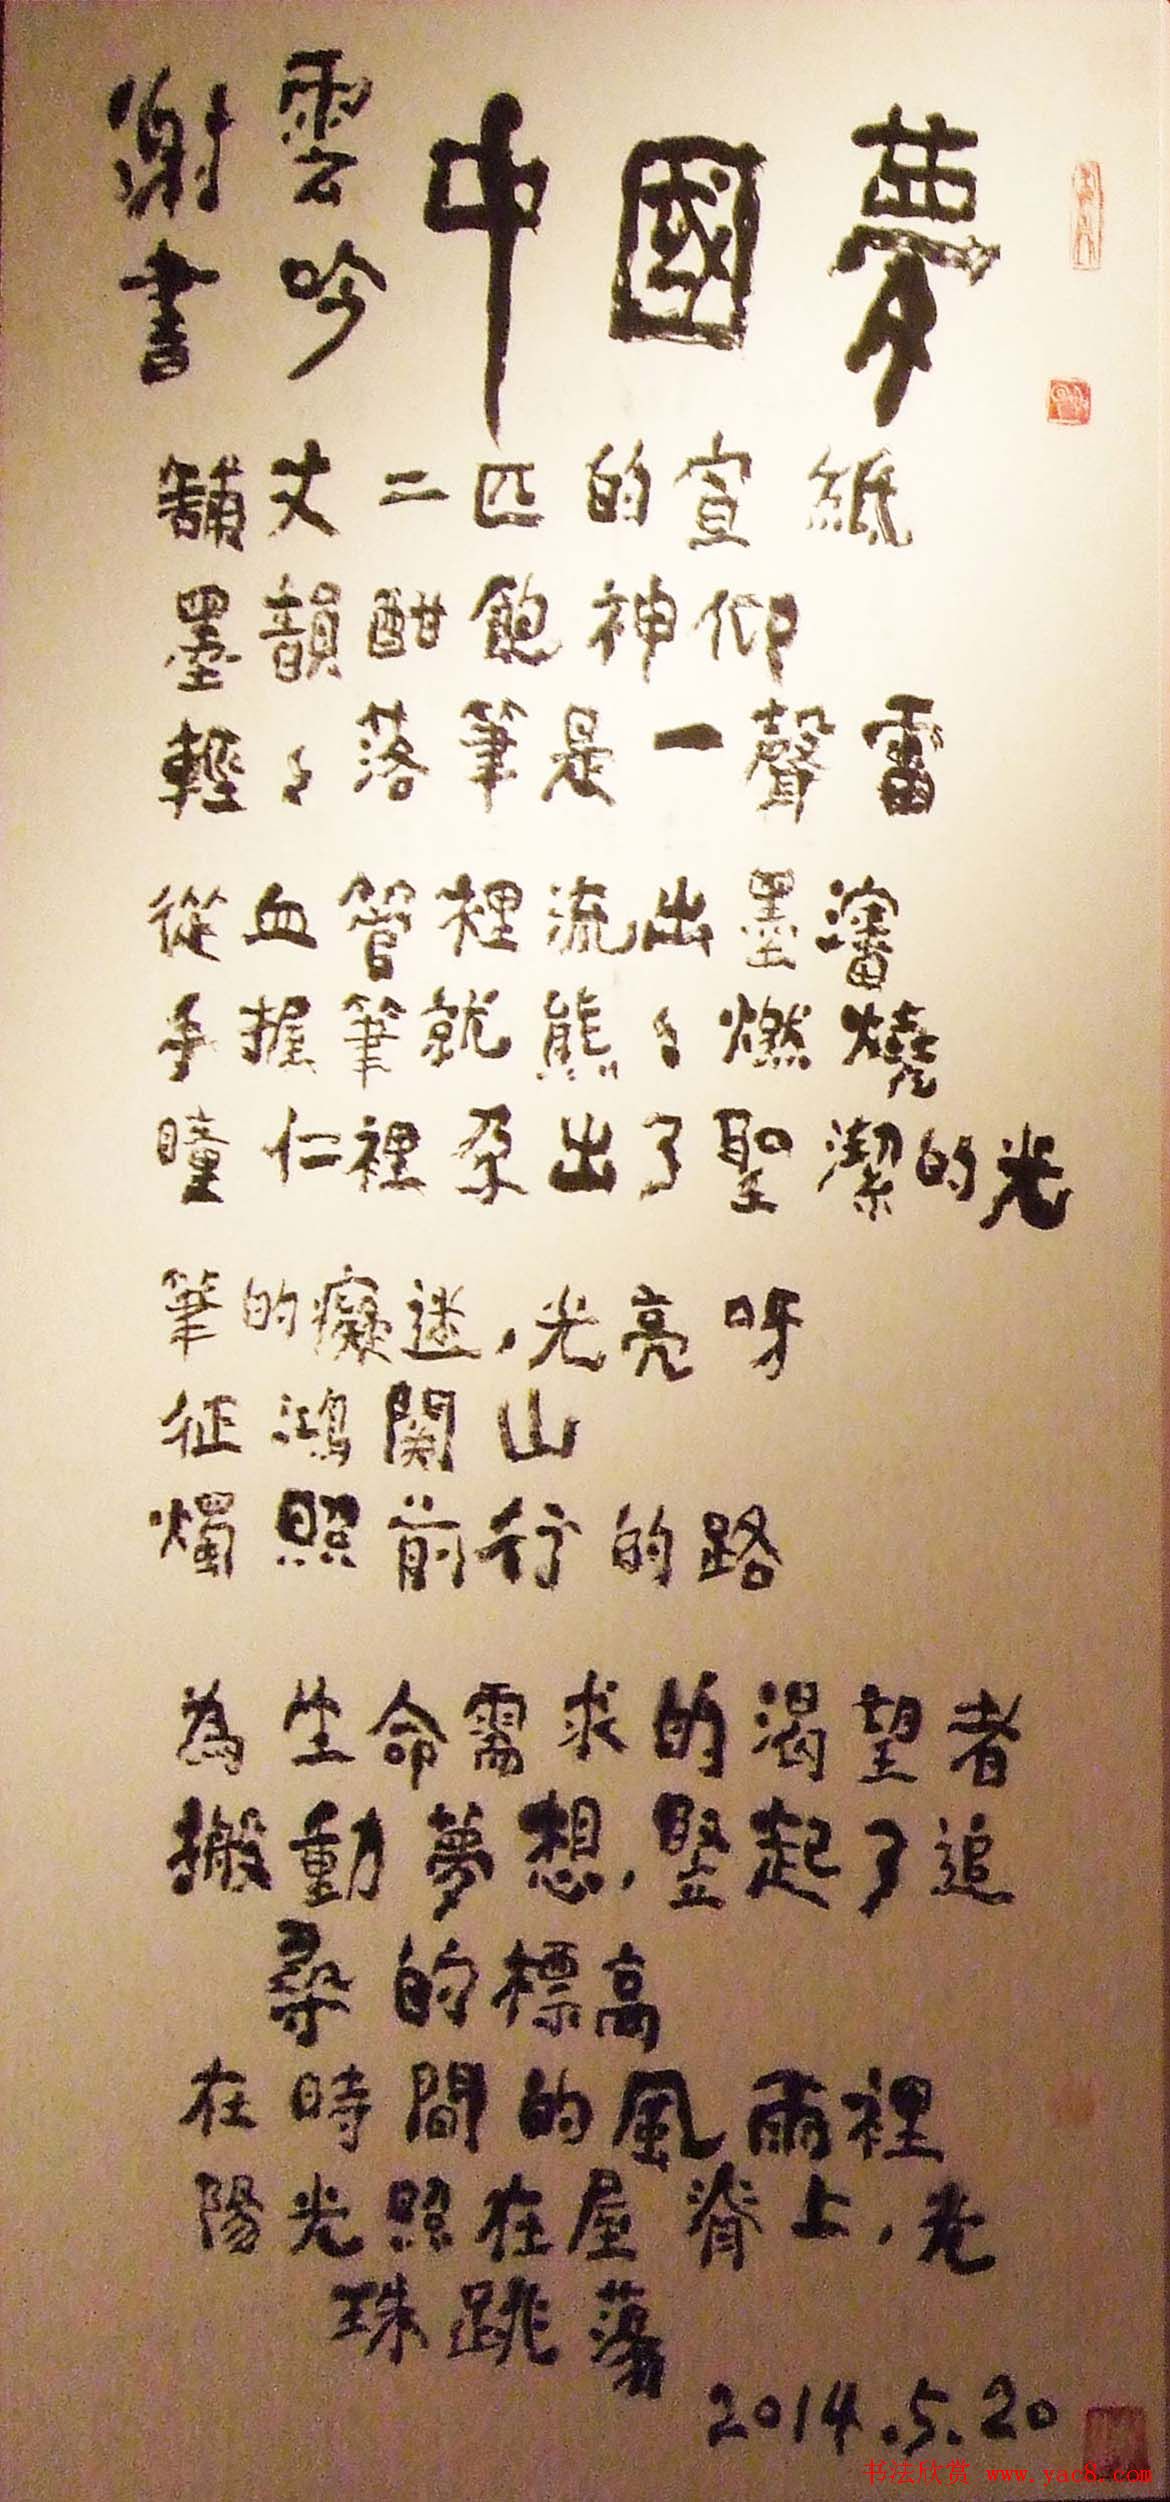 中國夢
謝雲吟書
舖丈二匹的宣紙
墨韻酣飽神仰
輕々落筆是一聲雷
從血管裡流出墨瀋
手握筆就熊々燃燒
瞳仁裡孕出了聖潔的光
筆的癡迷，光亮呀
征鴻関山
燭照前行的路
為生命需求的渴望者
搬動夢想，竪起了追
尋的標高
在時間的風雨裡
陽光照在屋脊上，光
珠跳蕩
2014.5.20
书法欣赏 www.yac8.com